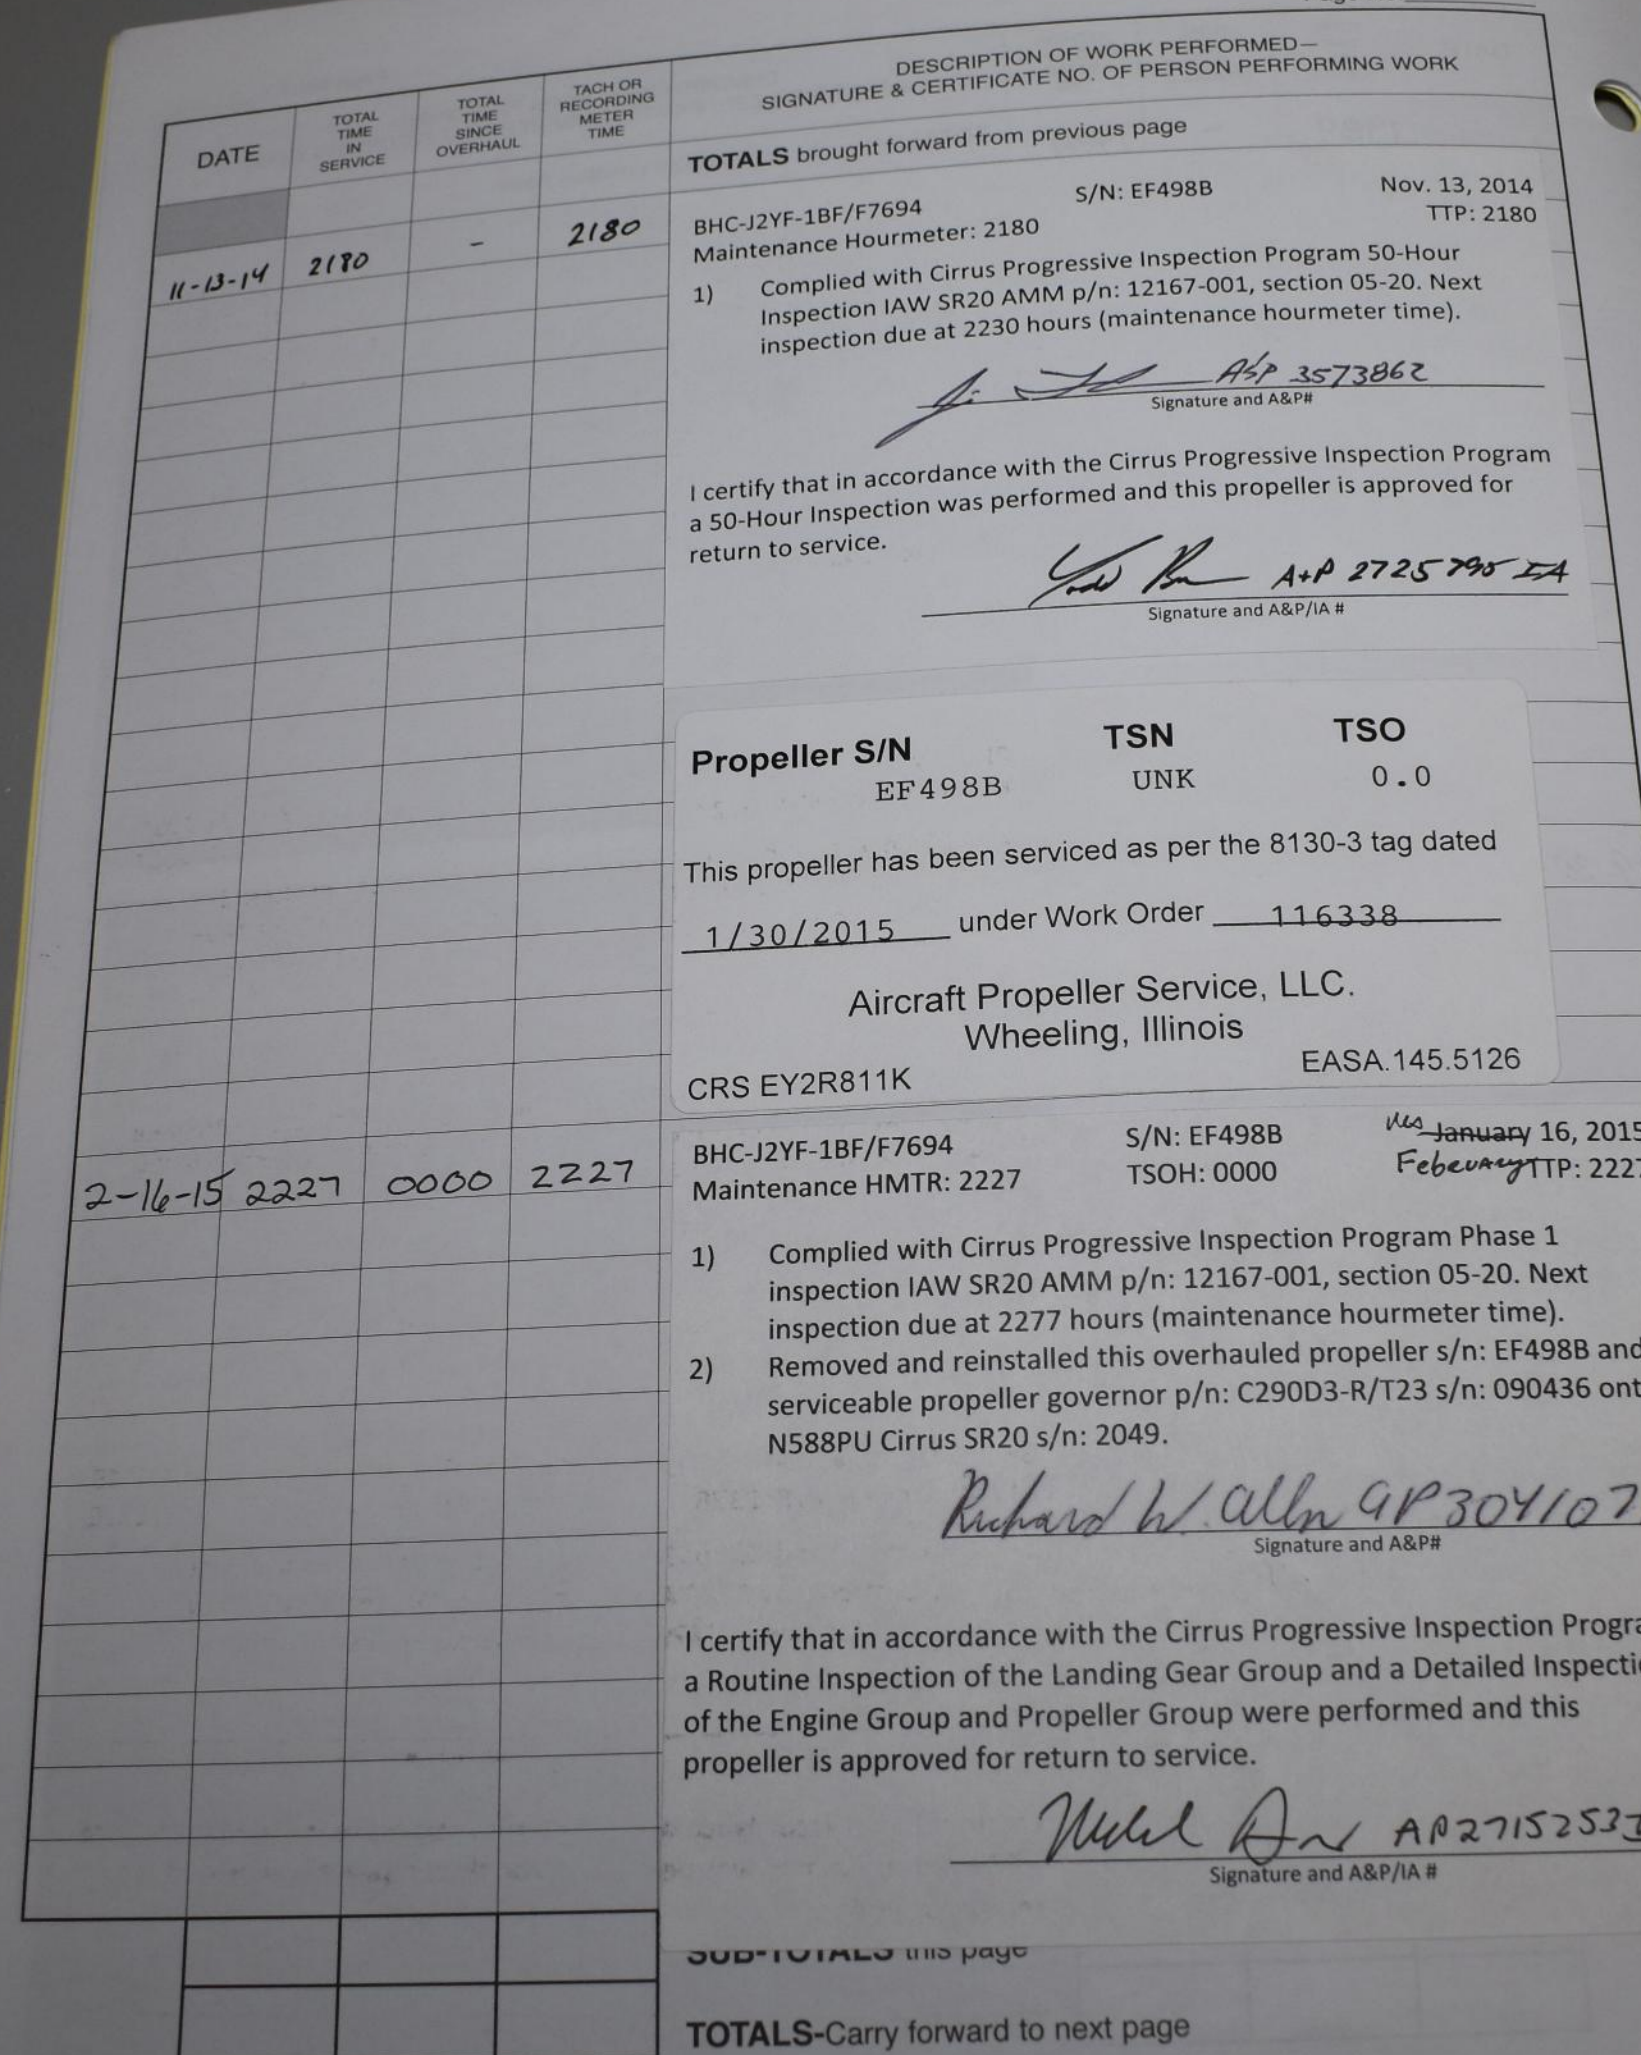 DESCRIPTION OF WORK PERFORMED—
SIGNATURE & CERTIFICATE NO. OF PERSON PERFORMING WORK
DATE
TOTAL
TIME
IN
SERVICE
TOTAL
TIME
SINCE
OVERHAUL
TACH OR
RECORDING
METER
TIME
TOTALS brought forward from previous page
11-13-14 2180 - 2180
BHC-J2YF-1BF/F7694 S/N: EF498B Nov. 13, 2014
Maintenance Hourmeter: 2180 TTP: 2180
1) Complied with Cirrus Progressive Inspection Program 50-Hour
Inspection IAW SR20 AMM p/n: 12167-001, section 05-20. Next
inspection due at 2230 hours (maintenance hourmeter time).
A&P 3573862
Signature and A&P#
I certify that in accordance with the Cirrus Progressive Inspection Program
a 50-Hour Inspection was performed and this propeller is approved for
return to service.
A+P 2725795 IA
Signature and A&P/IA #
Propeller S/N TSN TSO
EF498B UNK 0.0
This propeller has been serviced as per the 8130-3 tag dated
1/30/2015 under Work Order 116338
Aircraft Propeller Service, LLC.
Wheeling, Illinois
CRS EY2R811K EASA.145.5126
2-16-15 2227 0000 2227
BHC-J2YF-1BF/F7694 S/N: EF498B January 16, 2015
Maintenance HMTR: 2227 TSOH: 0000 February TTP: 2227
1) Complied with Cirrus Progressive Inspection Program Phase 1
inspection IAW SR20 AMM p/n: 12167-001, section 05-20. Next
inspection due at 2277 hours (maintenance hourmeter time).
2) Removed and reinstalled this overhauled propeller s/n: EF498B and
serviceable propeller governor p/n: C290D3-R/T23 s/n: 090436 ont
N588PU Cirrus SR20 s/n: 2049.
Richard W. Allen AP304107
Signature and A&P#
I certify that in accordance with the Cirrus Progressive Inspection Progra
a Routine Inspection of the Landing Gear Group and a Detailed Inspecti
of the Engine Group and Propeller Group were performed and this
propeller is approved for return to service.
AP2715253I
Signature and A&P/IA #
SUB-TOTALS this page
TOTALS-Carry forward to next page